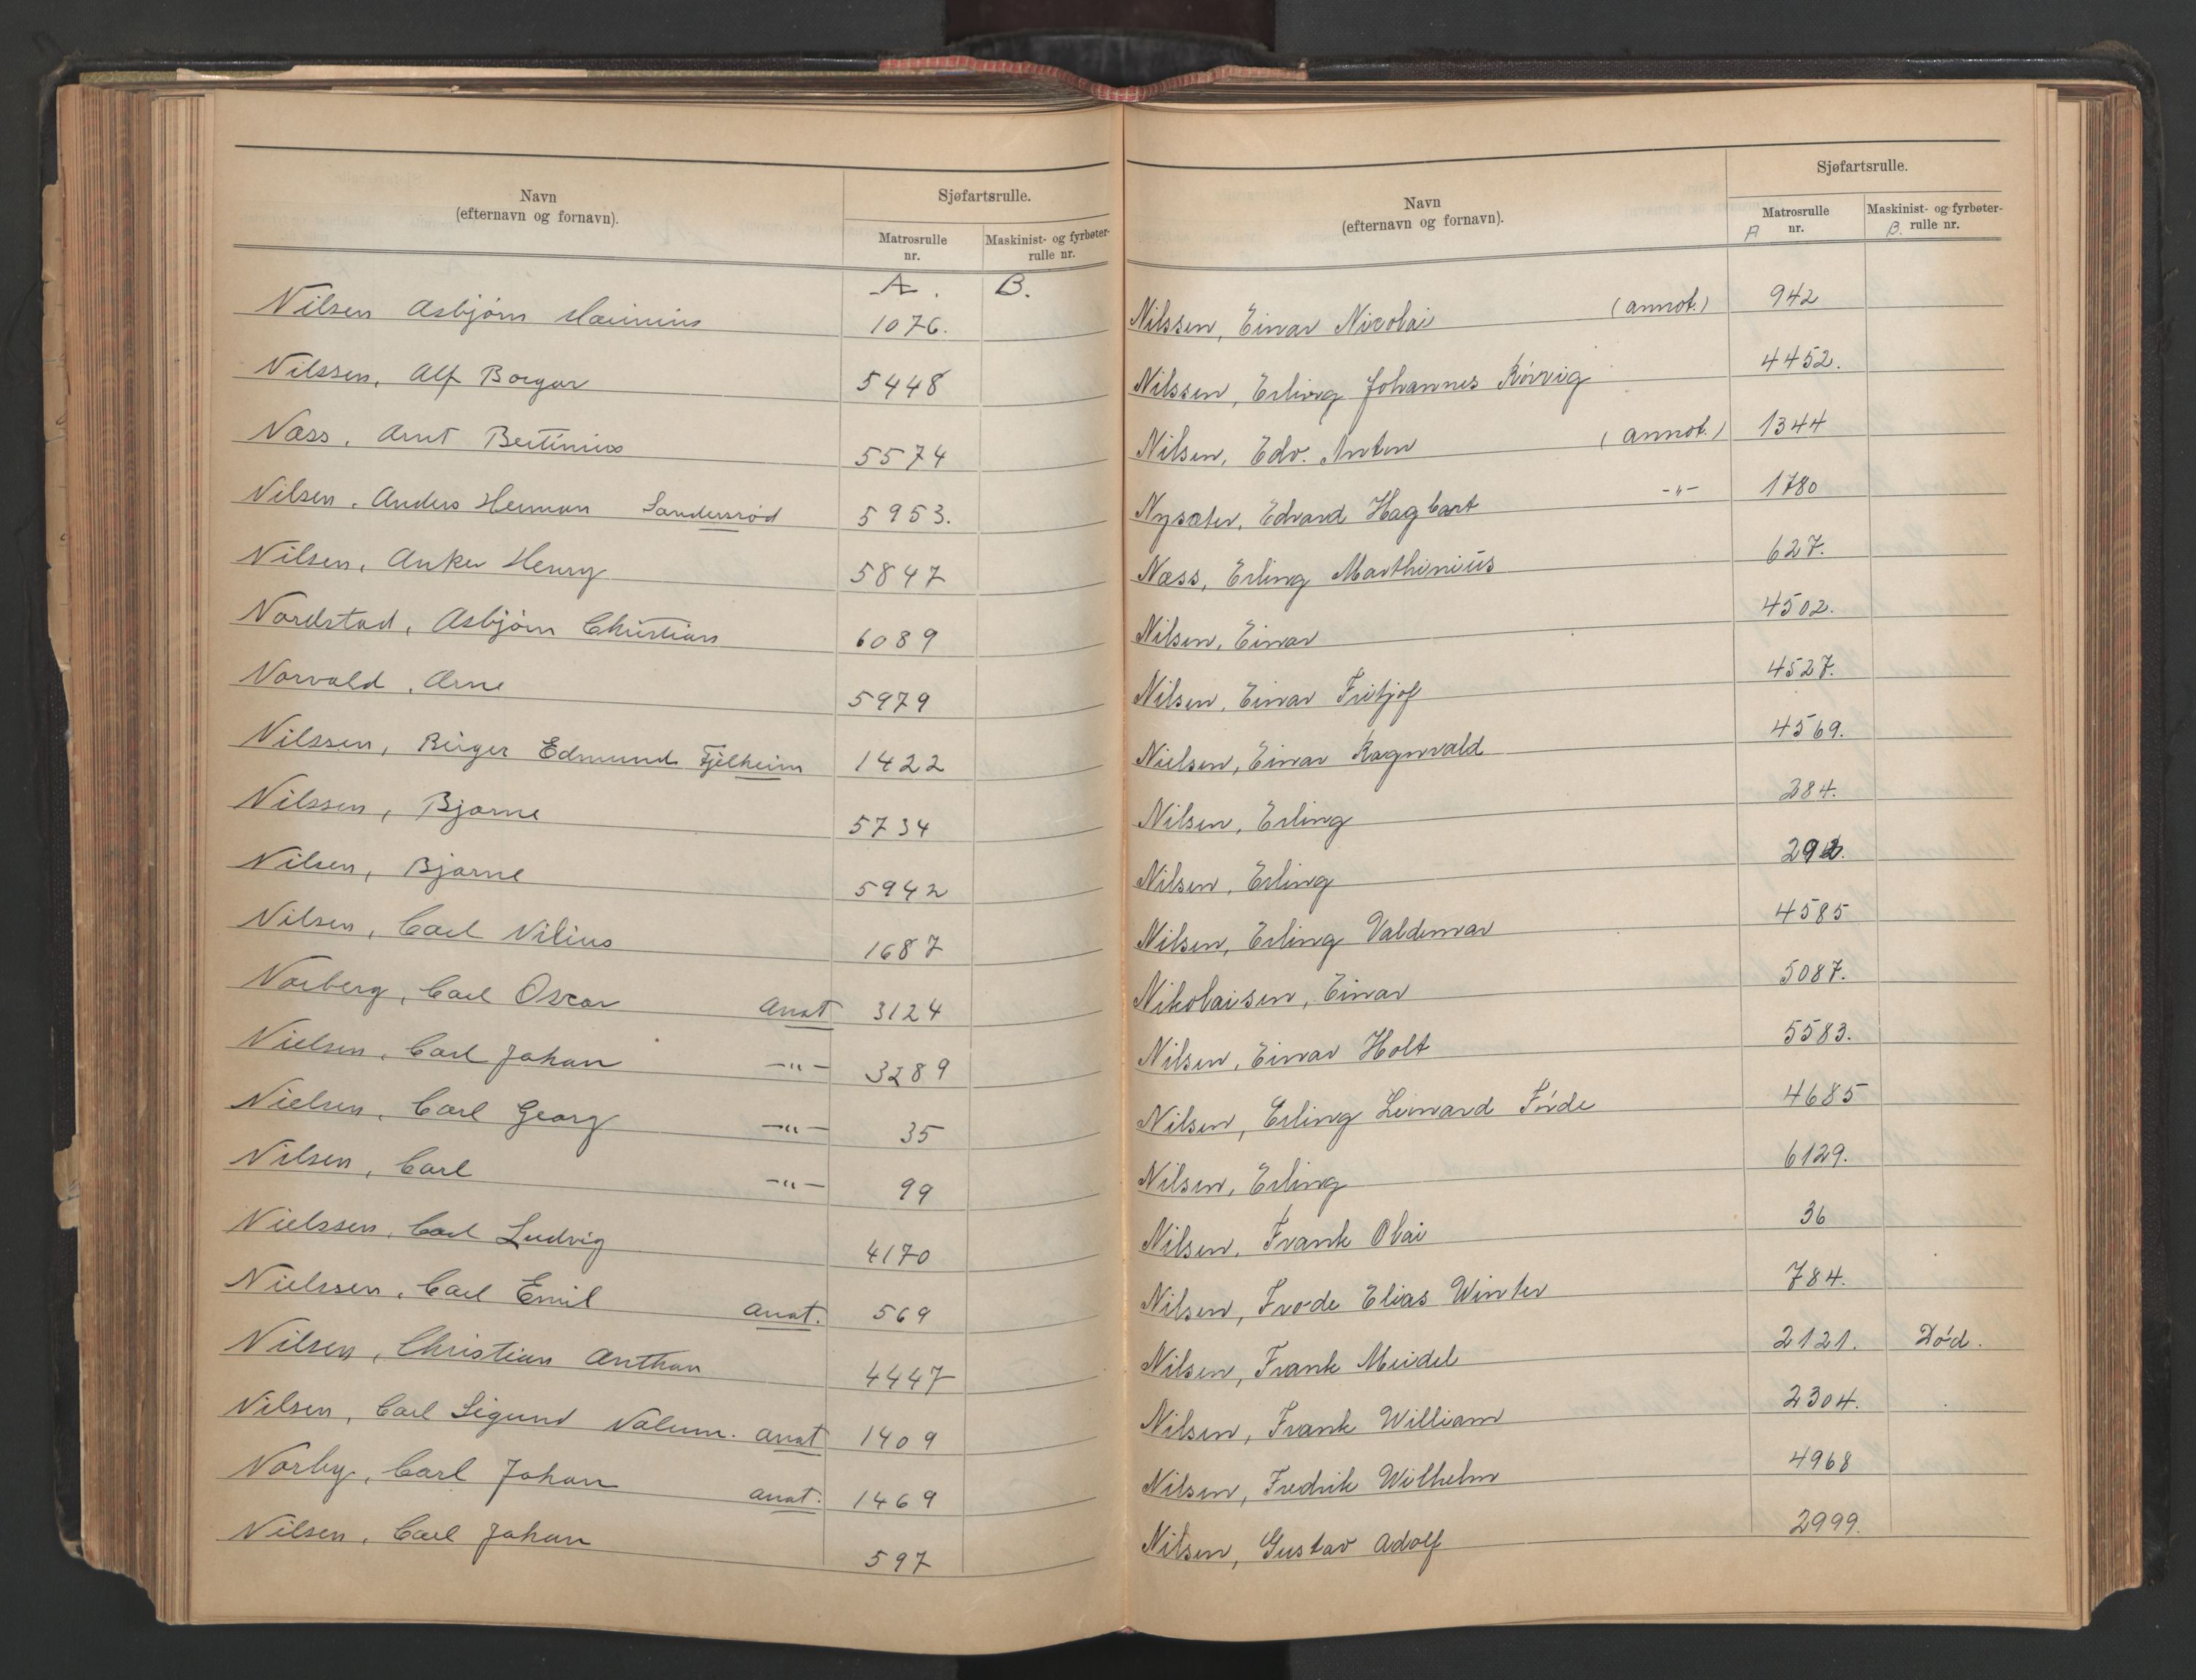 Navn
(efternavn og fornavn).
Sjøfartsrulle.
Matrosrulle
nr.
Maskinist- og fyrbøter-
rulle nr.
A. B.
Nilsen Asbjørn 1076.
Nilssen, Alf Borgar 5448
Næss, Arnt Bertinius 5574
Nilsen, Anders Herman Sandersrød 5953.
Nilsen, Anker Henry 5847
Nordstad, Asbjørn Christian 6089
Norvald, Arne 5979
Nilssen, Birger Edmund Fjelheim 1422
Nilssen, Bjarne 5734
Nilsen, Bjarne 5942
Nilsen, Carl Nilius 1687
Norberg, Carl Oscar anot 3124
Nielsen, Carl Johan -"- 3289
Nielsen, Carl Georg -"- 35
Nilsen, Carl -"- 99
Nielssen, Carl Ludvig 4170
Nielssen, Carl Emil anot. 569
Nilsen, Christian Anthon 4447
Nilsen, Carl Sigund Valum. anot 1409
Norby, Carl Johan anot. 1469
Nilsen, Carl Johan 597
Navn
(efternavn og fornavn).
Sjøfartsrulle.
Matrosrulle
A nr.
Maskinist- og fyrbøter-
B. rulle nr.
Nilssen, Einar Nicolai (annot.) 942
Nilssen, Erling Johannes Rövig 4452.
Nilsen, Edv. Anton (annot.) 1344
Nysæter, Edvard Hagbart -"- 1780
Næss, Erling Marthinius 627.
Nilsen, Einar 4502.
Nilsen, Einar Fritjof 4527.
Nielsen, Einar Ragnvald 4569.
Nilsen, Erling 284.
Nilsen, Erling 292.
Nilsen, Erling Valdemar 4585
Nikolaisen, Einar 5087.
Nilsen, Einar Holt 5583.
Nilsen, Erling Leonard Förde 4685
Nilsen, Erling 6129.
Nilsen, Frank Olai 36
Nilsen, Frode Elias Winter 784.
Nilsen, Frank Meidel 2121. Död.
Nilsen, Frank William 2304.
Nilsen, Fredrik Wilhelm 4968
Nilsen, Gustav Adolf 2999.